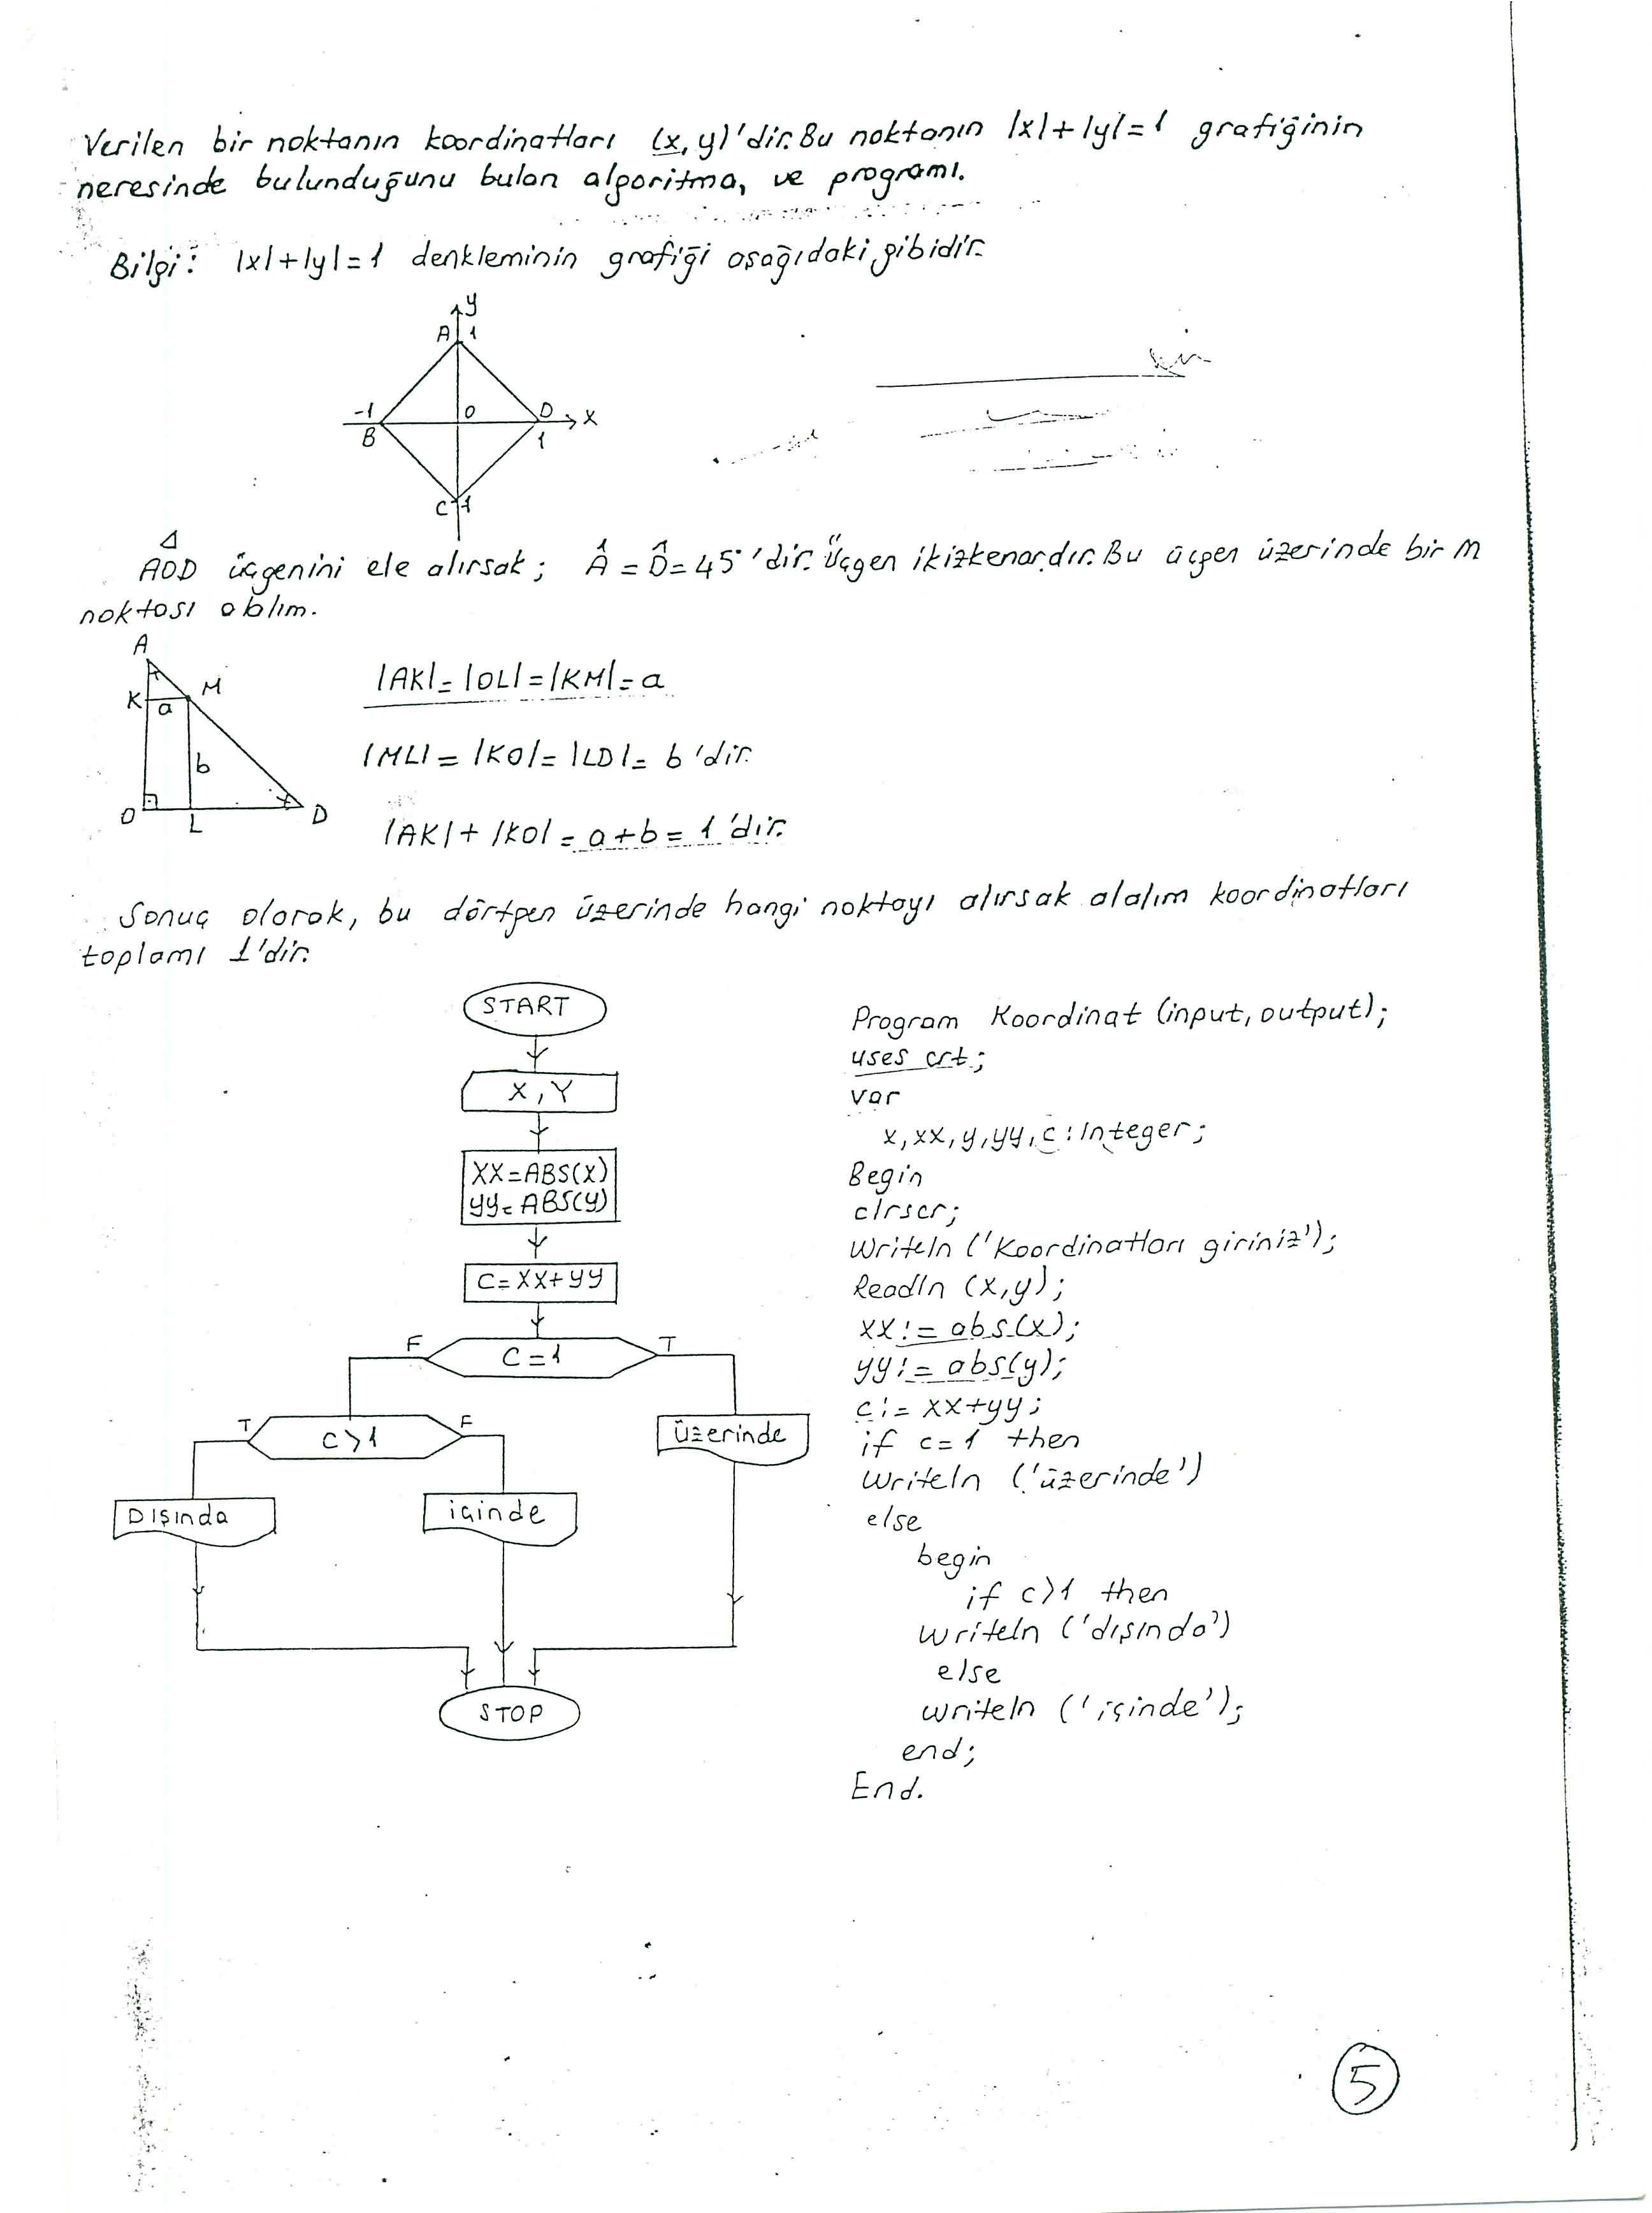 Verilen bir noktanın koordinatları (x, y)'dir. Bu noktanın |x|+|y|=1 grafiğinin
neresinde bulunduğunu bulan algoritma, ve programı.
Bilgi: |x|+|y|=1 denkleminin grafiği aşağıdaki gibidir.
y
A 1
-1 0 D x
B 1
C -1
AOD üçgenini ele alırsak; Â = D̂ = 45°'dir. Üçgen ikizkenardır. Bu üçgen üzerinde bir M
noktası alalım.
A
K a M
b
O L D
|AK| = |OL| = |KM| = a
|ML| = |KO| = |LD| = b 'dir.
|AK| + |KO| = a+b = 1'dir.
Sonuç olarak, bu dörtgen üzerinde hangi noktayı alırsak alalım koordinatları
toplamı 1'dir.
START
X, Y
XX=ABS(X)
YY=ABS(Y)
C=XX+YY
F C=1 T
T C>1 F
üzerinde
Dışında
içinde
STOP
Program Koordinat (input, output);
uses crt;
var
x, xx, y, yy, c : Integer;
Begin
clrscr;
Writeln ('Koordinatları giriniz');
Readln (x,y);
xx := abs(x);
yy := abs(y);
c := xx+yy;
if c=1 then
writeln ('üzerinde')
else
begin
if c>1 then
writeln ('dışında')
else
writeln ('içinde');
end;
End.
5